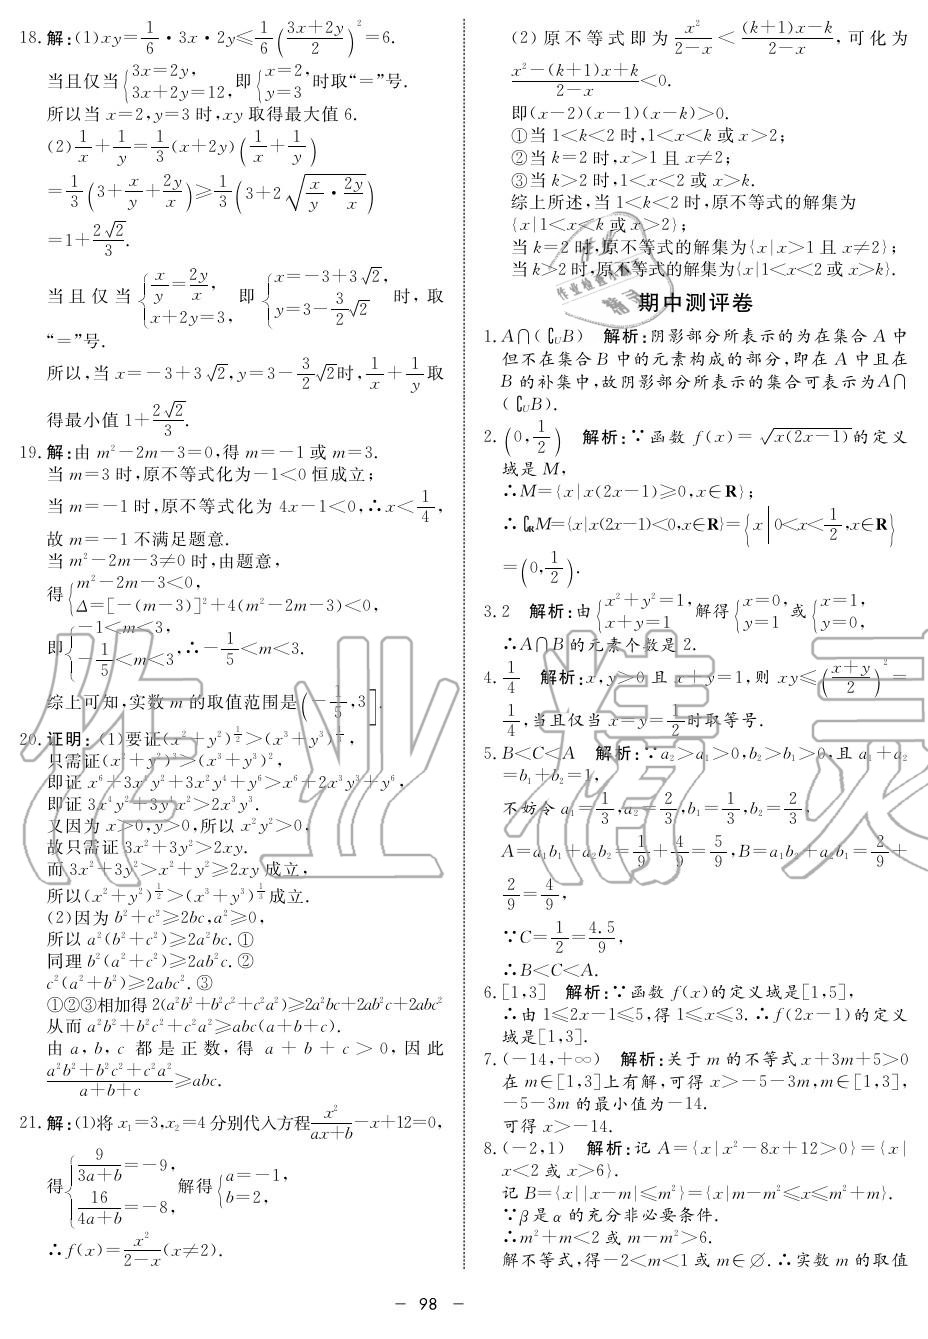 18.解:(1)xy=1/6·3x·2y≤1/6((3x+2y)/2)²=6.
当且仅当{3x=2y, 3x+2y=12, 即{x=2, y=3 时取“=”号.
所以当 x=2,y=3 时,xy 取得最大值 6.
(2)1/x+1/y=1/3(x+2y)(1/x+1/y)
=1/3(3+x/y+2y/x)≥1/3(3+2√(x/y·2y/x))
=1+2√2/3.
当且仅当{x/y=2y/x, x+2y=3, 即{x=-3+3√2, y=3-3/2√2 时,取
“=”号.
所以,当 x=-3+3√2,y=3-3/2√2时,1/x+1/y取
得最小值 1+2√2/3.
19.解:由 m²-2m-3=0,得 m=-1 或 m=3.
当 m=3 时,原不等式化为-1<0 恒成立;
当 m=-1 时,原不等式化为 4x-1<0,∴x<1/4,
故 m=-1 不满足题意.
当 m²-2m-3≠0 时,由题意,
得{m²-2m-3<0, Δ=[-(m-3)]²+4(m²-2m-3)<0,
即{-1<m<3, -1/5<m<3, ∴-1/5<m<3.
综上可知,实数 m 的取值范围是(-1/5,3].
20.证明:(1)要证(x²+y²)^(1/2)>(x³+y³)^(1/3),
只需证(x²+y²)³>(x³+y³)²,
即证 x⁶+3x⁴y²+3x²y⁴+y⁶>x⁶+2x³y³+y⁶,
即证 3x⁴y²+3y⁴x²>2x³y³.
又因为 x>0,y>0,所以 x²y²>0,
故只需证 3x²+3y²>2xy.
而 3x²+3y²>x²+y²≥2xy 成立,
所以(x²+y²)^(1/2)>(x³+y³)^(1/3)成立.
(2)因为 b²+c²≥2bc,a²≥0,
所以 a²(b²+c²)≥2a²bc.①
同理 b²(a²+c²)≥2ab²c.②
c²(a²+b²)≥2abc².③
①②③相加得 2(a²b²+b²c²+c²a²)≥2a²bc+2ab²c+2abc²
从而 a²b²+b²c²+c²a²≥abc(a+b+c).
由 a,b,c 都是正数,得 a+b+c>0,因此
(a²b²+b²c²+c²a²)/(a+b+c)≥abc.
21.解:(1)将 x₁=3,x₂=4 分别代入方程x²/(ax+b)-x+12=0,
得{9/(3a+b)=-9, 16/(4a+b)=-8, 解得{a=-1, b=2,
∴f(x)=x²/(2-x)(x≠2).
(2)原不等式即为x²/(2-x)<((k+1)x-k)/(2-x),可化为
(x²-(k+1)x+k)/(2-x)<0.
即(x-2)(x-1)(x-k)>0.
①当 1<k<2 时,1<x<k 或 x>2;
②当 k=2 时,x>1 且 x≠2;
③当 k>2 时,1<x<2 或 x>k.
综上所述,当 1<k<2 时,原不等式的解集为
{x|1<x<k 或 x>2};
当 k=2 时,原不等式的解集为{x|x>1 且 x≠2};
当 k>2 时,原不等式的解集为{x|1<x<2 或 x>k}.
期中测评卷
1.A∩(∁ᵤB) 解析:阴影部分所表示的为在集合 A 中
但不在集合 B 中的元素构成的部分,即在 A 中且在
B 的补集中,故阴影部分所表示的集合可表示为A∩
(∁ᵤB).
2.(0,1/2) 解析:∵函数 f(x)=√(x(2x-1))的定义
域是 M,
∴M={x|x(2x-1)≥0,x∈R};
∴∁ᴿM={x|x(2x-1)<0,x∈R}={x|0<x<1/2,x∈R}
=(0,1/2).
3.2 解析:由{x²+y²=1, x+y=1 解得{x=0, y=1 或{x=1, y=0,
∴A∩B 的元素个数是 2.
4.1/4 解析:x,y>0 且 x+y=1,则 xy≤((x+y)/2)²=
1/4,当且仅当 x=y=1/2时取等号.
5.B<C<A 解析:∵a₂>a₁>0,b₂>b₁>0,且 a₁+a₂
=b₁+b₂=1,
不妨令 a₁=1/3,a₂=2/3,b₁=1/3,b₂=2/3,
A=a₁b₁+a₂b₂=1/9+4/9=5/9,B=a₁b₂+a₂b₁=2/9+
2/9=4/9,
∵C=1/2=4.5/9,
∴B<C<A.
6.[1,3] 解析:∵函数 f(x)的定义域是[1,5],
∴由 1≤2x-1≤5,得 1≤x≤3.∴f(2x-1)的定义
域是[1,3].
7.(-14,+∞) 解析:关于 m 的不等式 x+3m+5>0
在 m∈[1,3]上有解,可得 x>-5-3m,m∈[1,3],
-5-3m 的最小值为-14.
可得 x>-14.
8.(-2,1) 解析:记 A={x|x²-8x+12>0}={x|
x<2 或 x>6}.
记 B={x||x-m|≤m²}={x|m-m²≤x≤m²+m}.
∵β是 α 的充分非必要条件.
∴m²+m<2 或 m-m²>6.
解不等式,得-2<m<1 或 m∈∅.∴实数 m 的取值
— 98 —
作业精灵